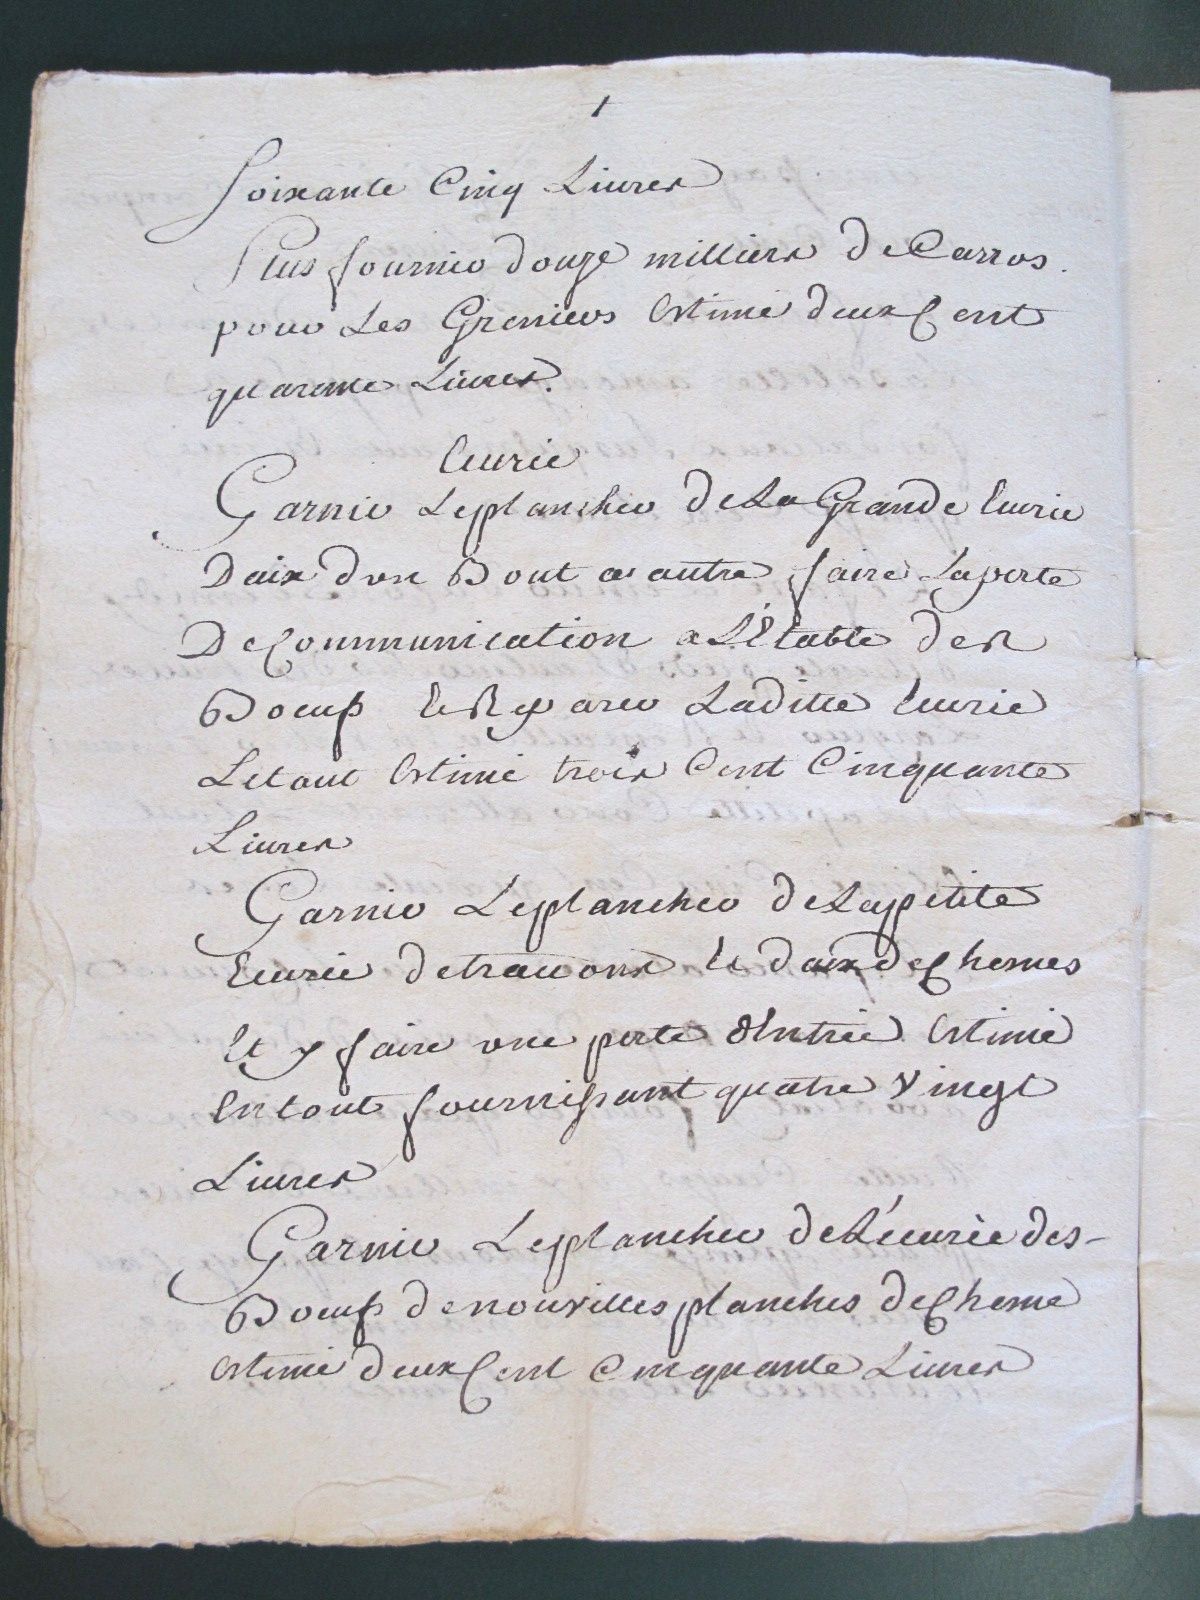 1
Soixante Cinq Livres
Plus fournir douze milliers de Carros.
pour Les Greniers Estimé deux Cent
quarente Livres.
Ecurie
Garnir Le plancher de La Grande Ecurie
Daix dun Bout a autre faire La porte
De Communication a L'Etable des
Boeufs Et Reparer Laditte Ecurie
Le tout Estimé trois Cent Cinquante
Livres
Garnir Le plancher de La petite
Ecurie de travons Et daix de Chesnes
Et y faire une porte dEntrée Estimé
En tout fournissant quatre Vingt
Livres
Garnir Le plancher de L'écurie des-
Boeufs de nouvelles planches de Chesne
Estimé deux Cent Cinquante Livres